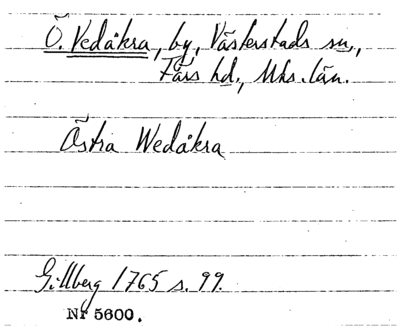 Ö. Vedåkra, by, Västerstads sn.,
Färs hd., Mhs. län.
Östra Wedåkra
Gillberg 1765 s. 99.
Nr 5600.